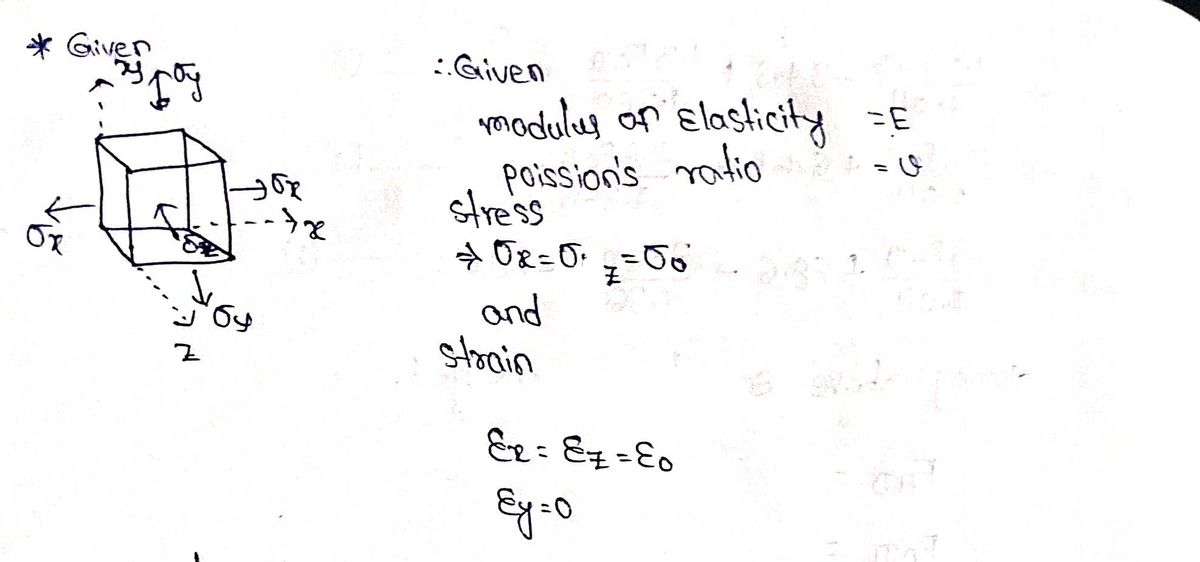 * Given
y
σy
σx
x
σx
σz
σy
z
∴ Given
modulus of Elasticity = E
poission's ratio = ʋ
stress
⇒ σx = σ. z = σ₀
and
strain
εx = εz = ε₀
εy = 0